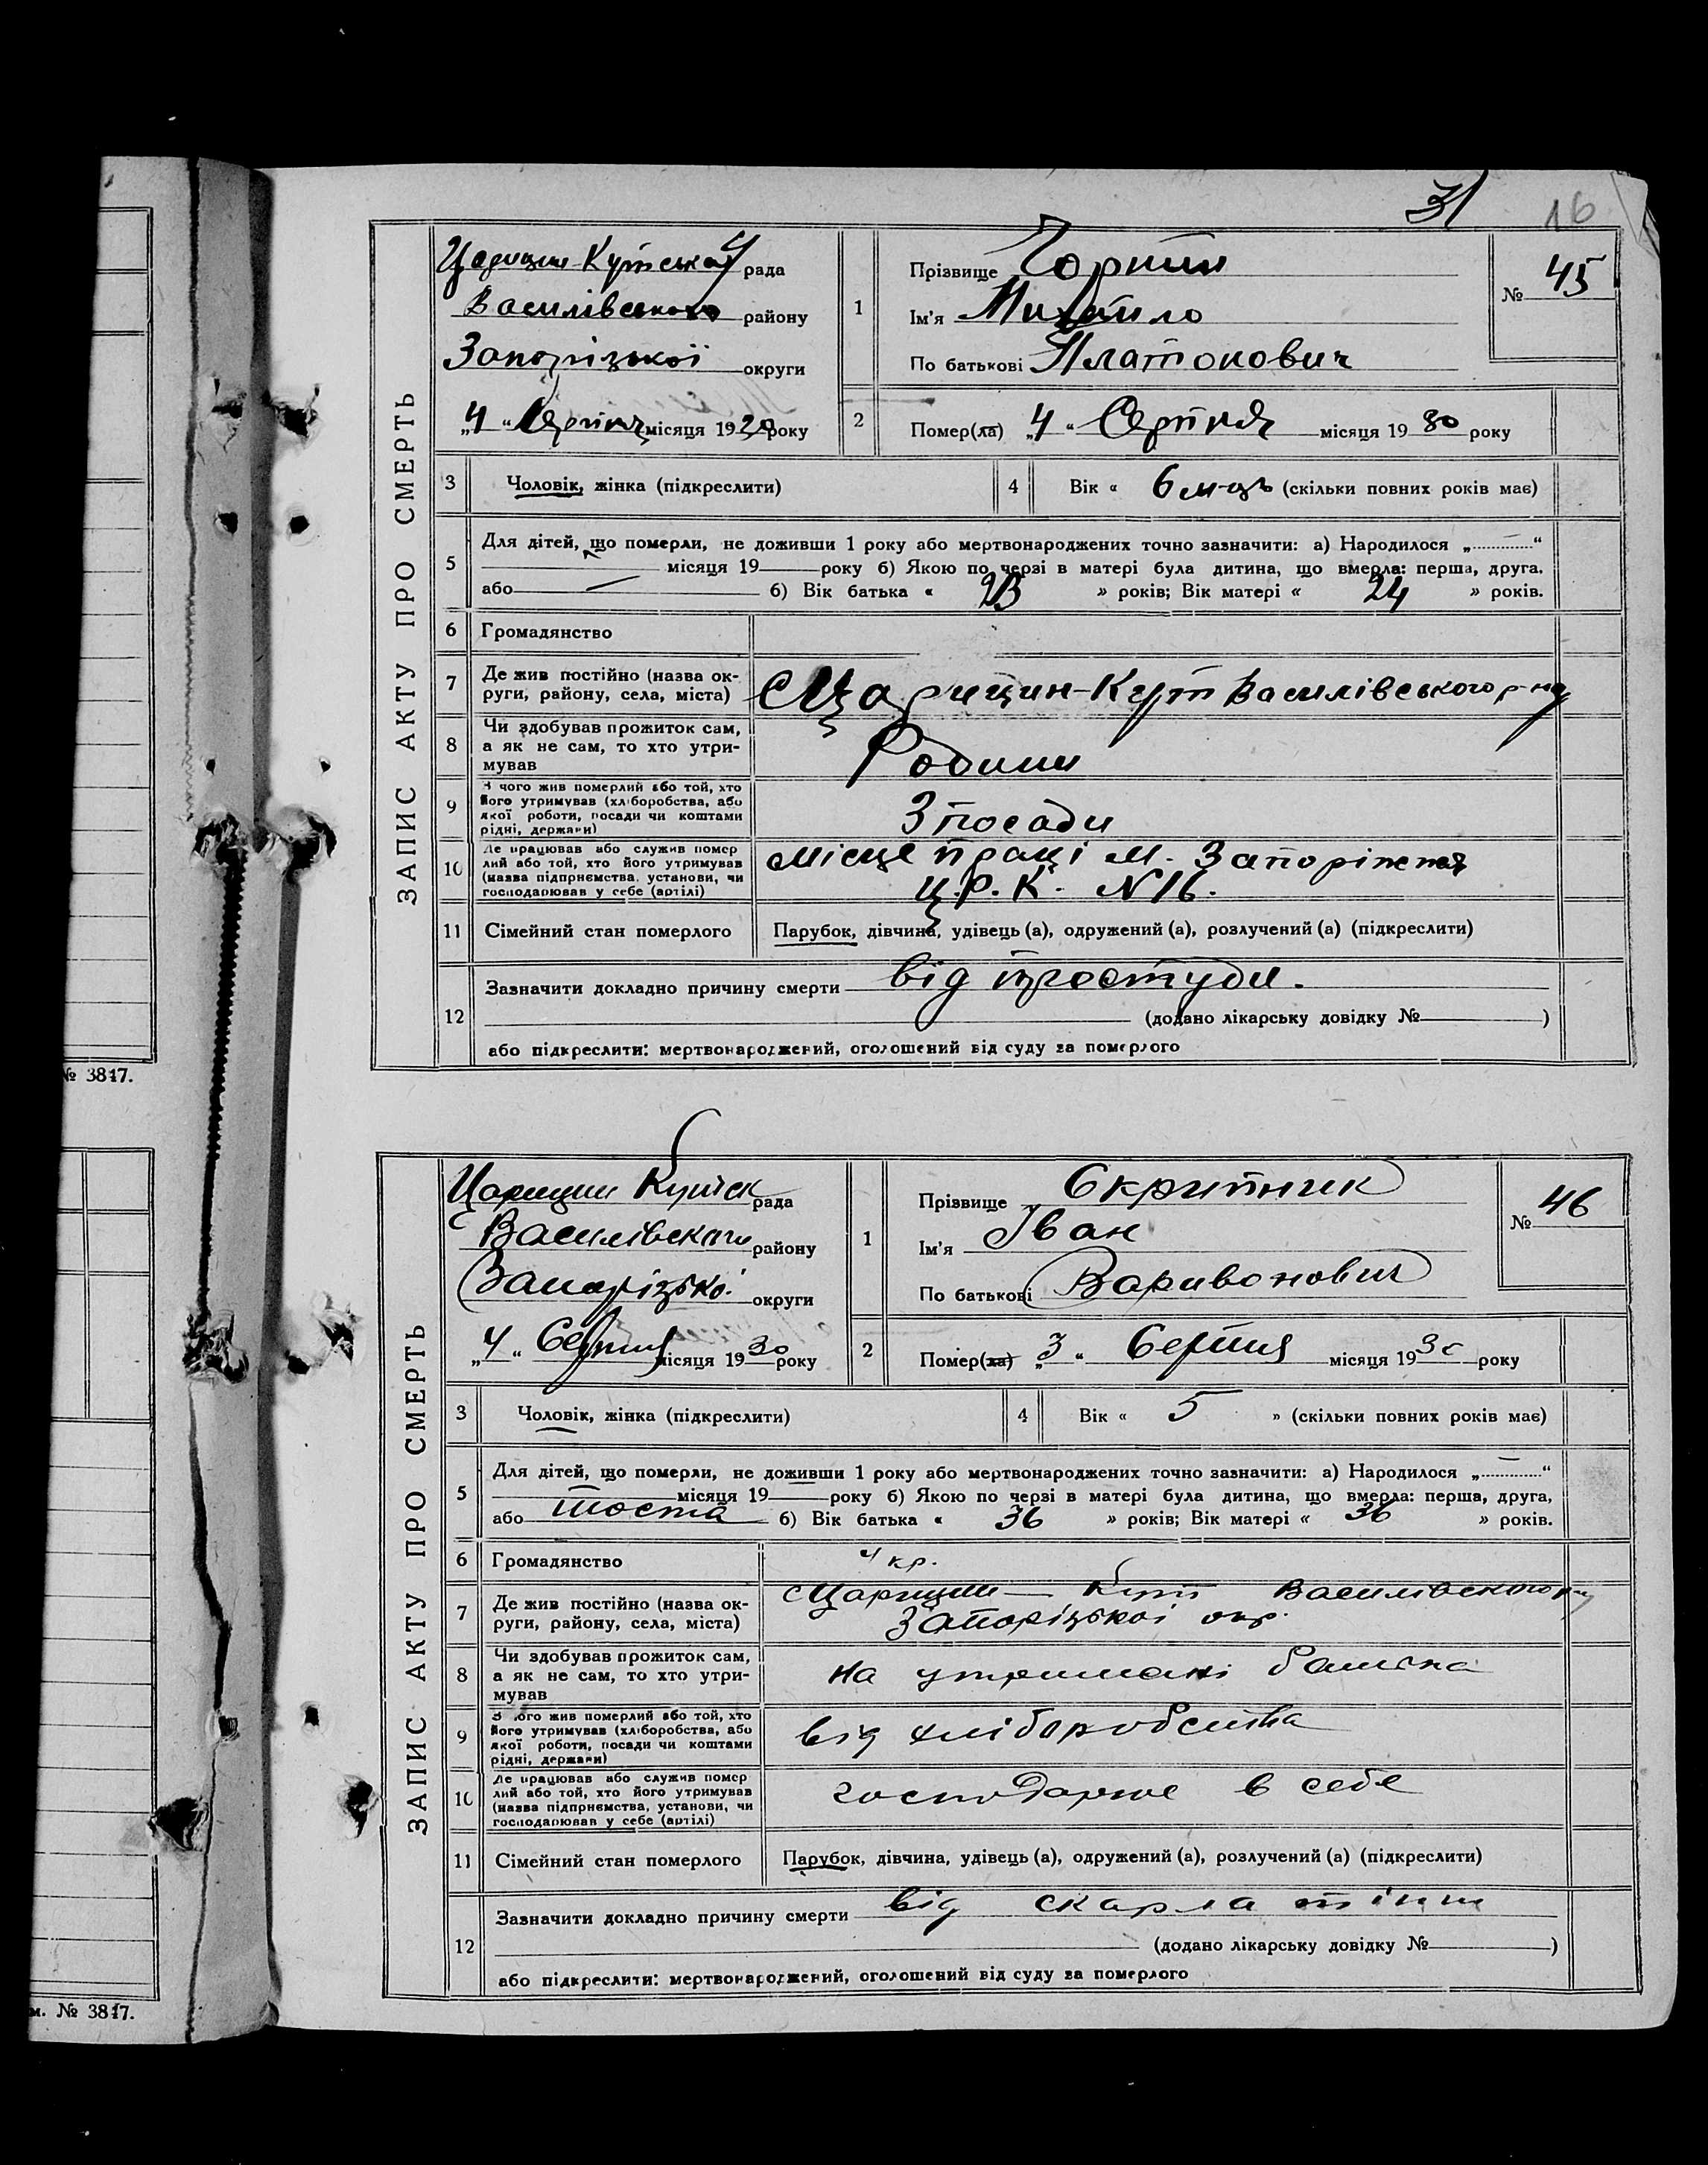 31 16
ЗАПИС АКТУ ПРО СМЕРТЬ
Царицин-Кутська рада
Василівського району
Запорізької округи
„4“ Серпня місяця 1930 року
1
Прізвище Чорний
Ім'я Михайло
По батькові Платонович
№ 45
2
Помер(ла) „4“ Серпня місяця 1930 року
3 Чоловік, жінка (підкреслити)
4 Вік « 6 м-ць (скільки повних років має)
5 Для дітей, що померли, не доживши 1 року або мертвонароджених точно зазначити: а) Народилося „ “
місяця 19 року б) Якою по черзі в матері була дитина, що вмерла: перша, друга.
або — б) Вік батька « 23 » років; Вік матері « 24 » років.
6 Громадянство
7 Де жив постійно (назва округи, району, села, міста) с Царицин-Кут Василівського р-ну
8 Чи здобував прожиток сам, а як не сам, то хто утримував Родини
9 З чого жив померлий або той, хто його утримував (хліборобства, або якої роботи, посади чи коштами рідні, держави) З посади
10 Де працював або служив померлий або той, хто його утримував (назва підприємства, установи, чи господарював у себе (артілі) Місце праці м. Запоріжжя
Ц.Р.К. №16.
11 Сімейний стан померлого Парубок, дівчина, удівець (а), одружений (а), розлучений (а) (підкреслити)
12 Зазначити докладно причину смерти від простуди.
(додано лікарську довідку № )
або підкреслити: мертвонароджений, оголошений від суду за померлого
№ 3847.
ЗАПИС АКТУ ПРО СМЕРТЬ
Царицин Кутськ рада
Василівского району
Запорізької округи
„4“ Серпня місяця 1930 року
1
Прізвище Скрипник
Ім'я Іван
По батьковіВаривонович
№ 46
2
Помер(ла) „3“ Серпня місяця 1930 року
3 Чоловік, жінка (підкреслити)
4 Вік « 5 » (скільки повних років має)
5 Для дітей, що померли, не доживши 1 року або мертвонароджених точно зазначити: а) Народилося „ “
місяця 19 року б) Якою по черзі в матері була дитина, що вмерла: перша, друга,
або шоста б) Вік батька « 36 » років; Вік матері « 36 » років.
6 Громадянство укр.
7 Де жив постійно (назва округи, району, села, міста) с Царицин — Кут Василівского р-н
Запорізької окр.
8 Чи здобував прожиток сам, а як не сам, то хто утримував на утримані батька
9 З чого жив померлий або той, хто його утримував (хліборобства, або якої роботи, посади чи коштами рідні, держави) від хліборобства
10 Де працював або служив померлий або той, хто його утримував (назва підприємства, установи, чи господарював у себе (артілі) господарює в себе
11 Сімейний стан померлого Парубок, дівчина, удівець (а), одружений (а), розлучений (а) (підкреслити)
12 Зазначити докладно причину смерти від скарлатіни
(додано лікарську довідку № )
або підкреслити: мертвонароджений, оголошений від суду за померлого
м. № 3847.